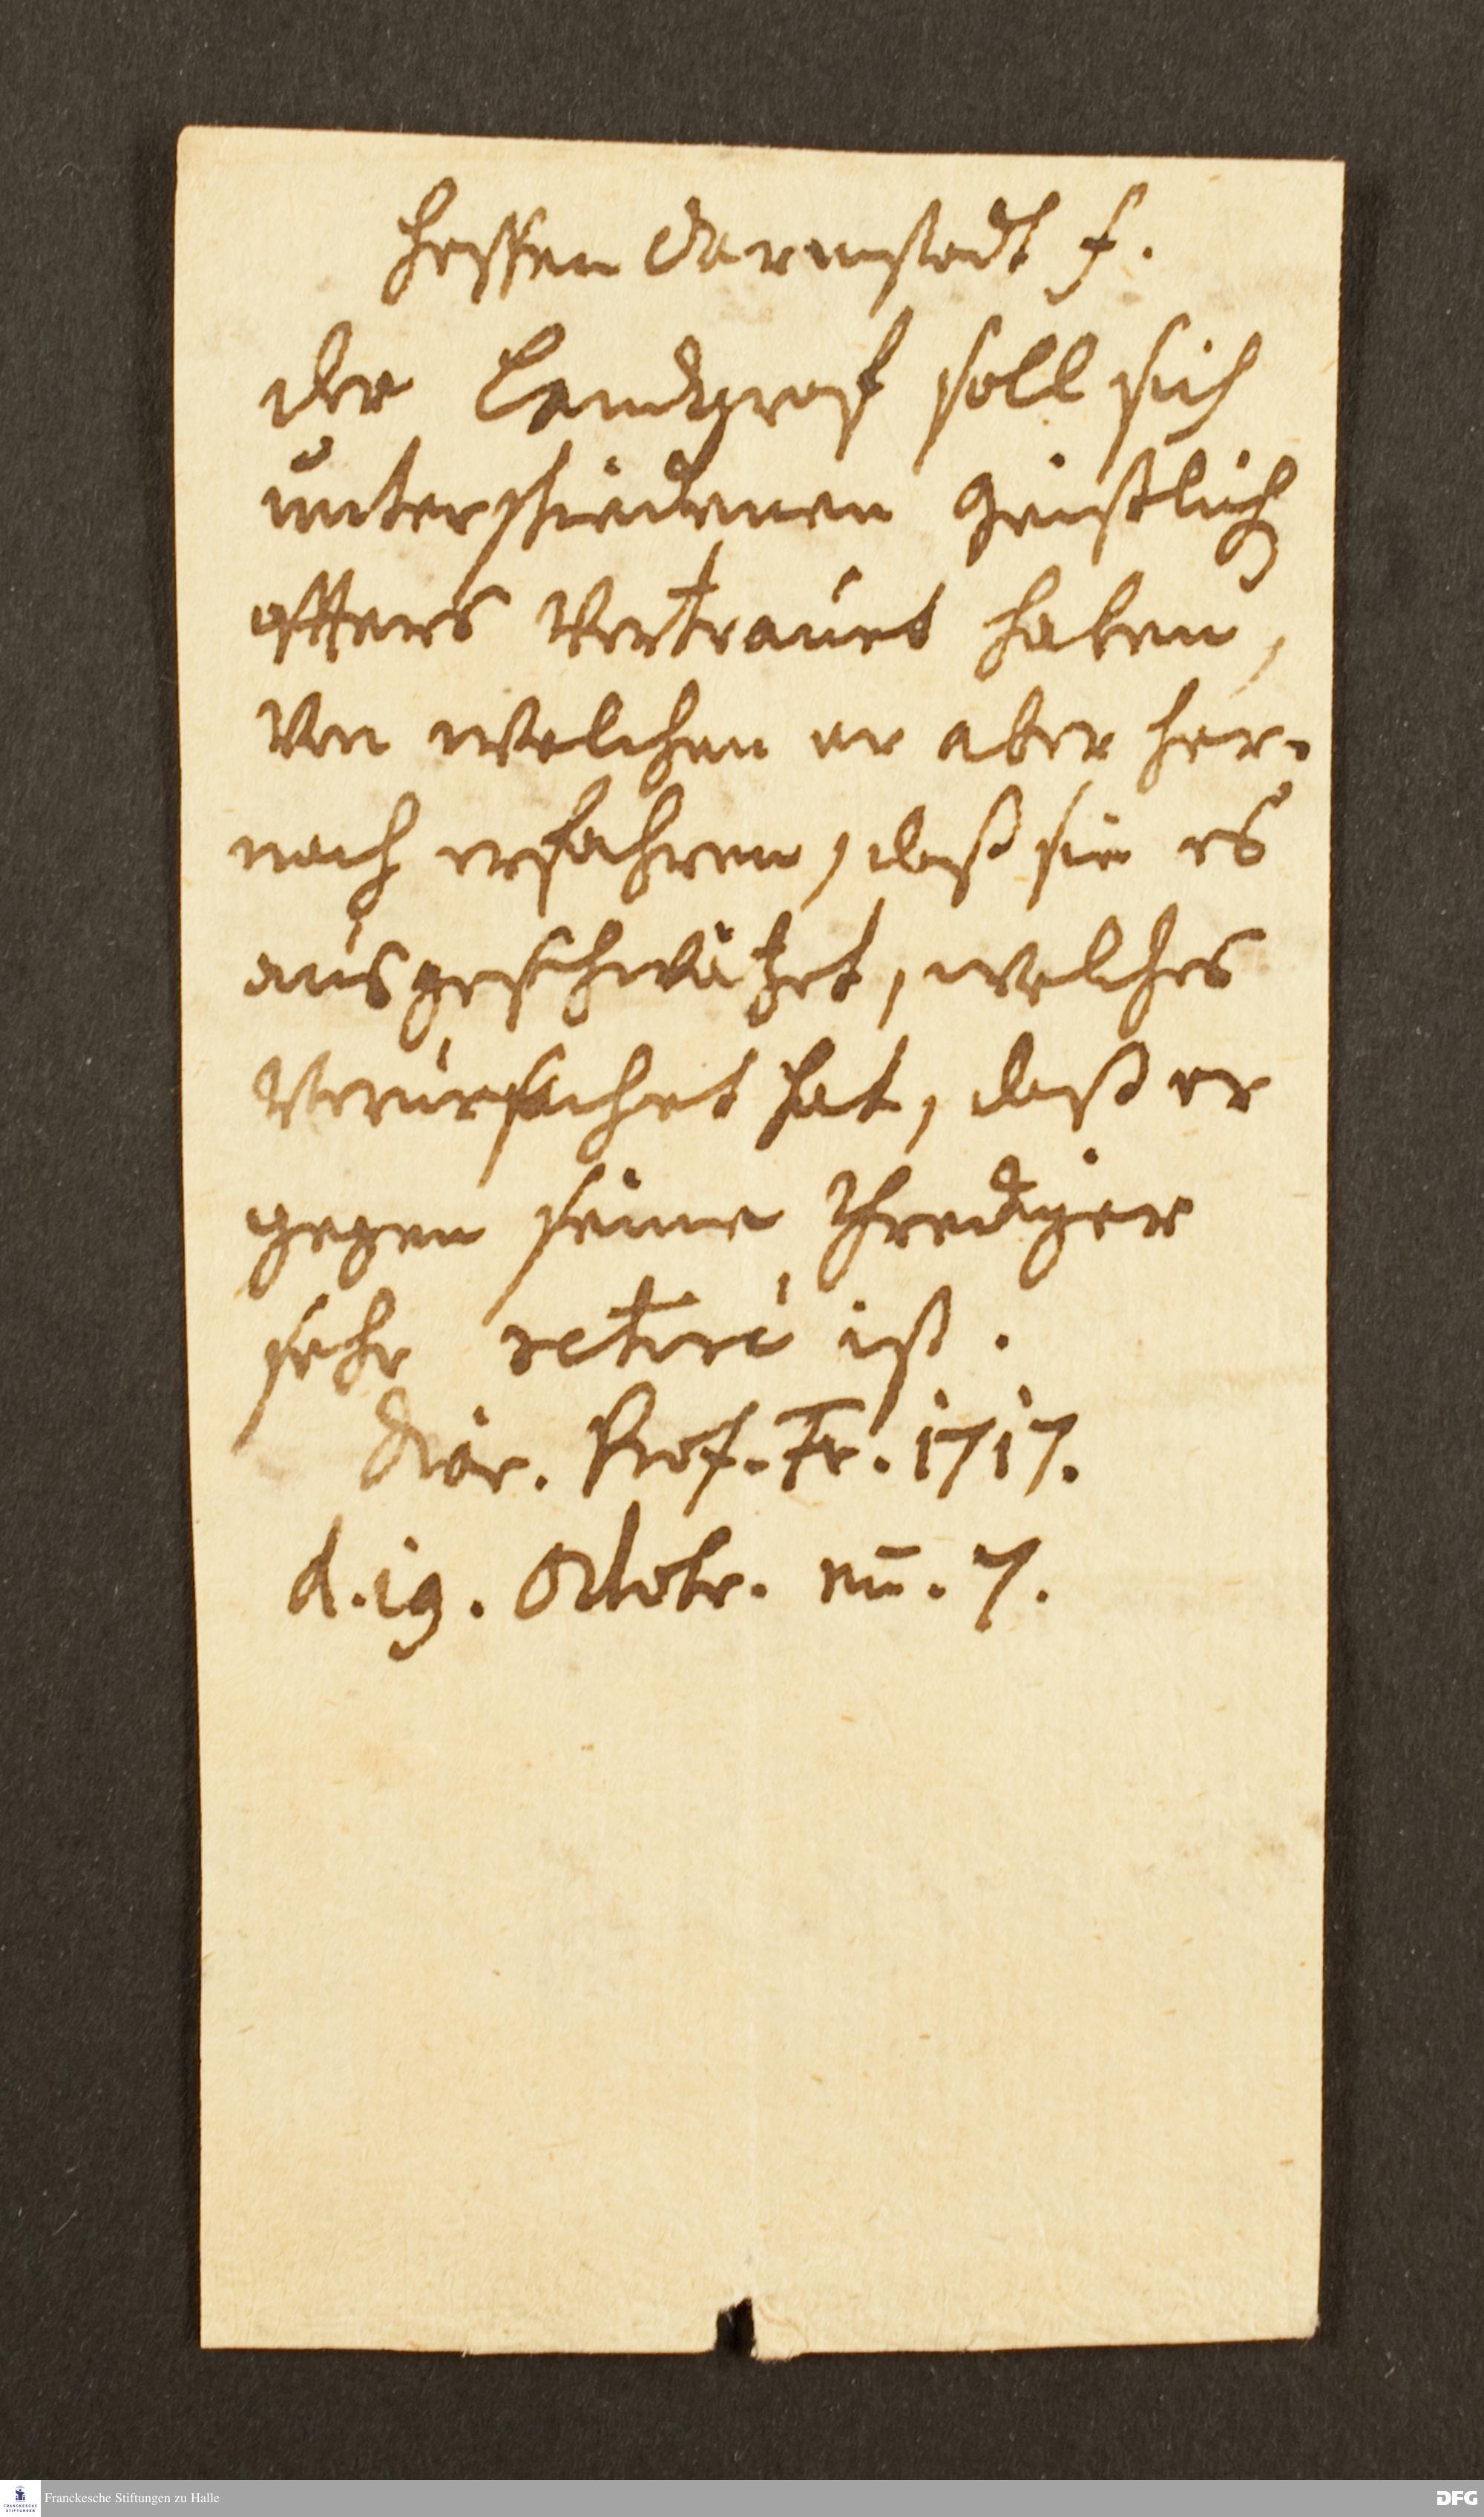 Hessen Darmstadt f.
der Landgraf soll sich
unterschiedenen Geistlich
offters vertrauet haben,
von welchen er aber her-
nach erfahren, daß sie es
ausgeschwätzet, welches
verursachet hat, daß er
gegen seine Prediger
sehr retiré ist.
Diar. Prof. Fr. 1717.
d. 19. Octobr. nū. 7.
Franckesche Stiftungen zu Halle
DFG